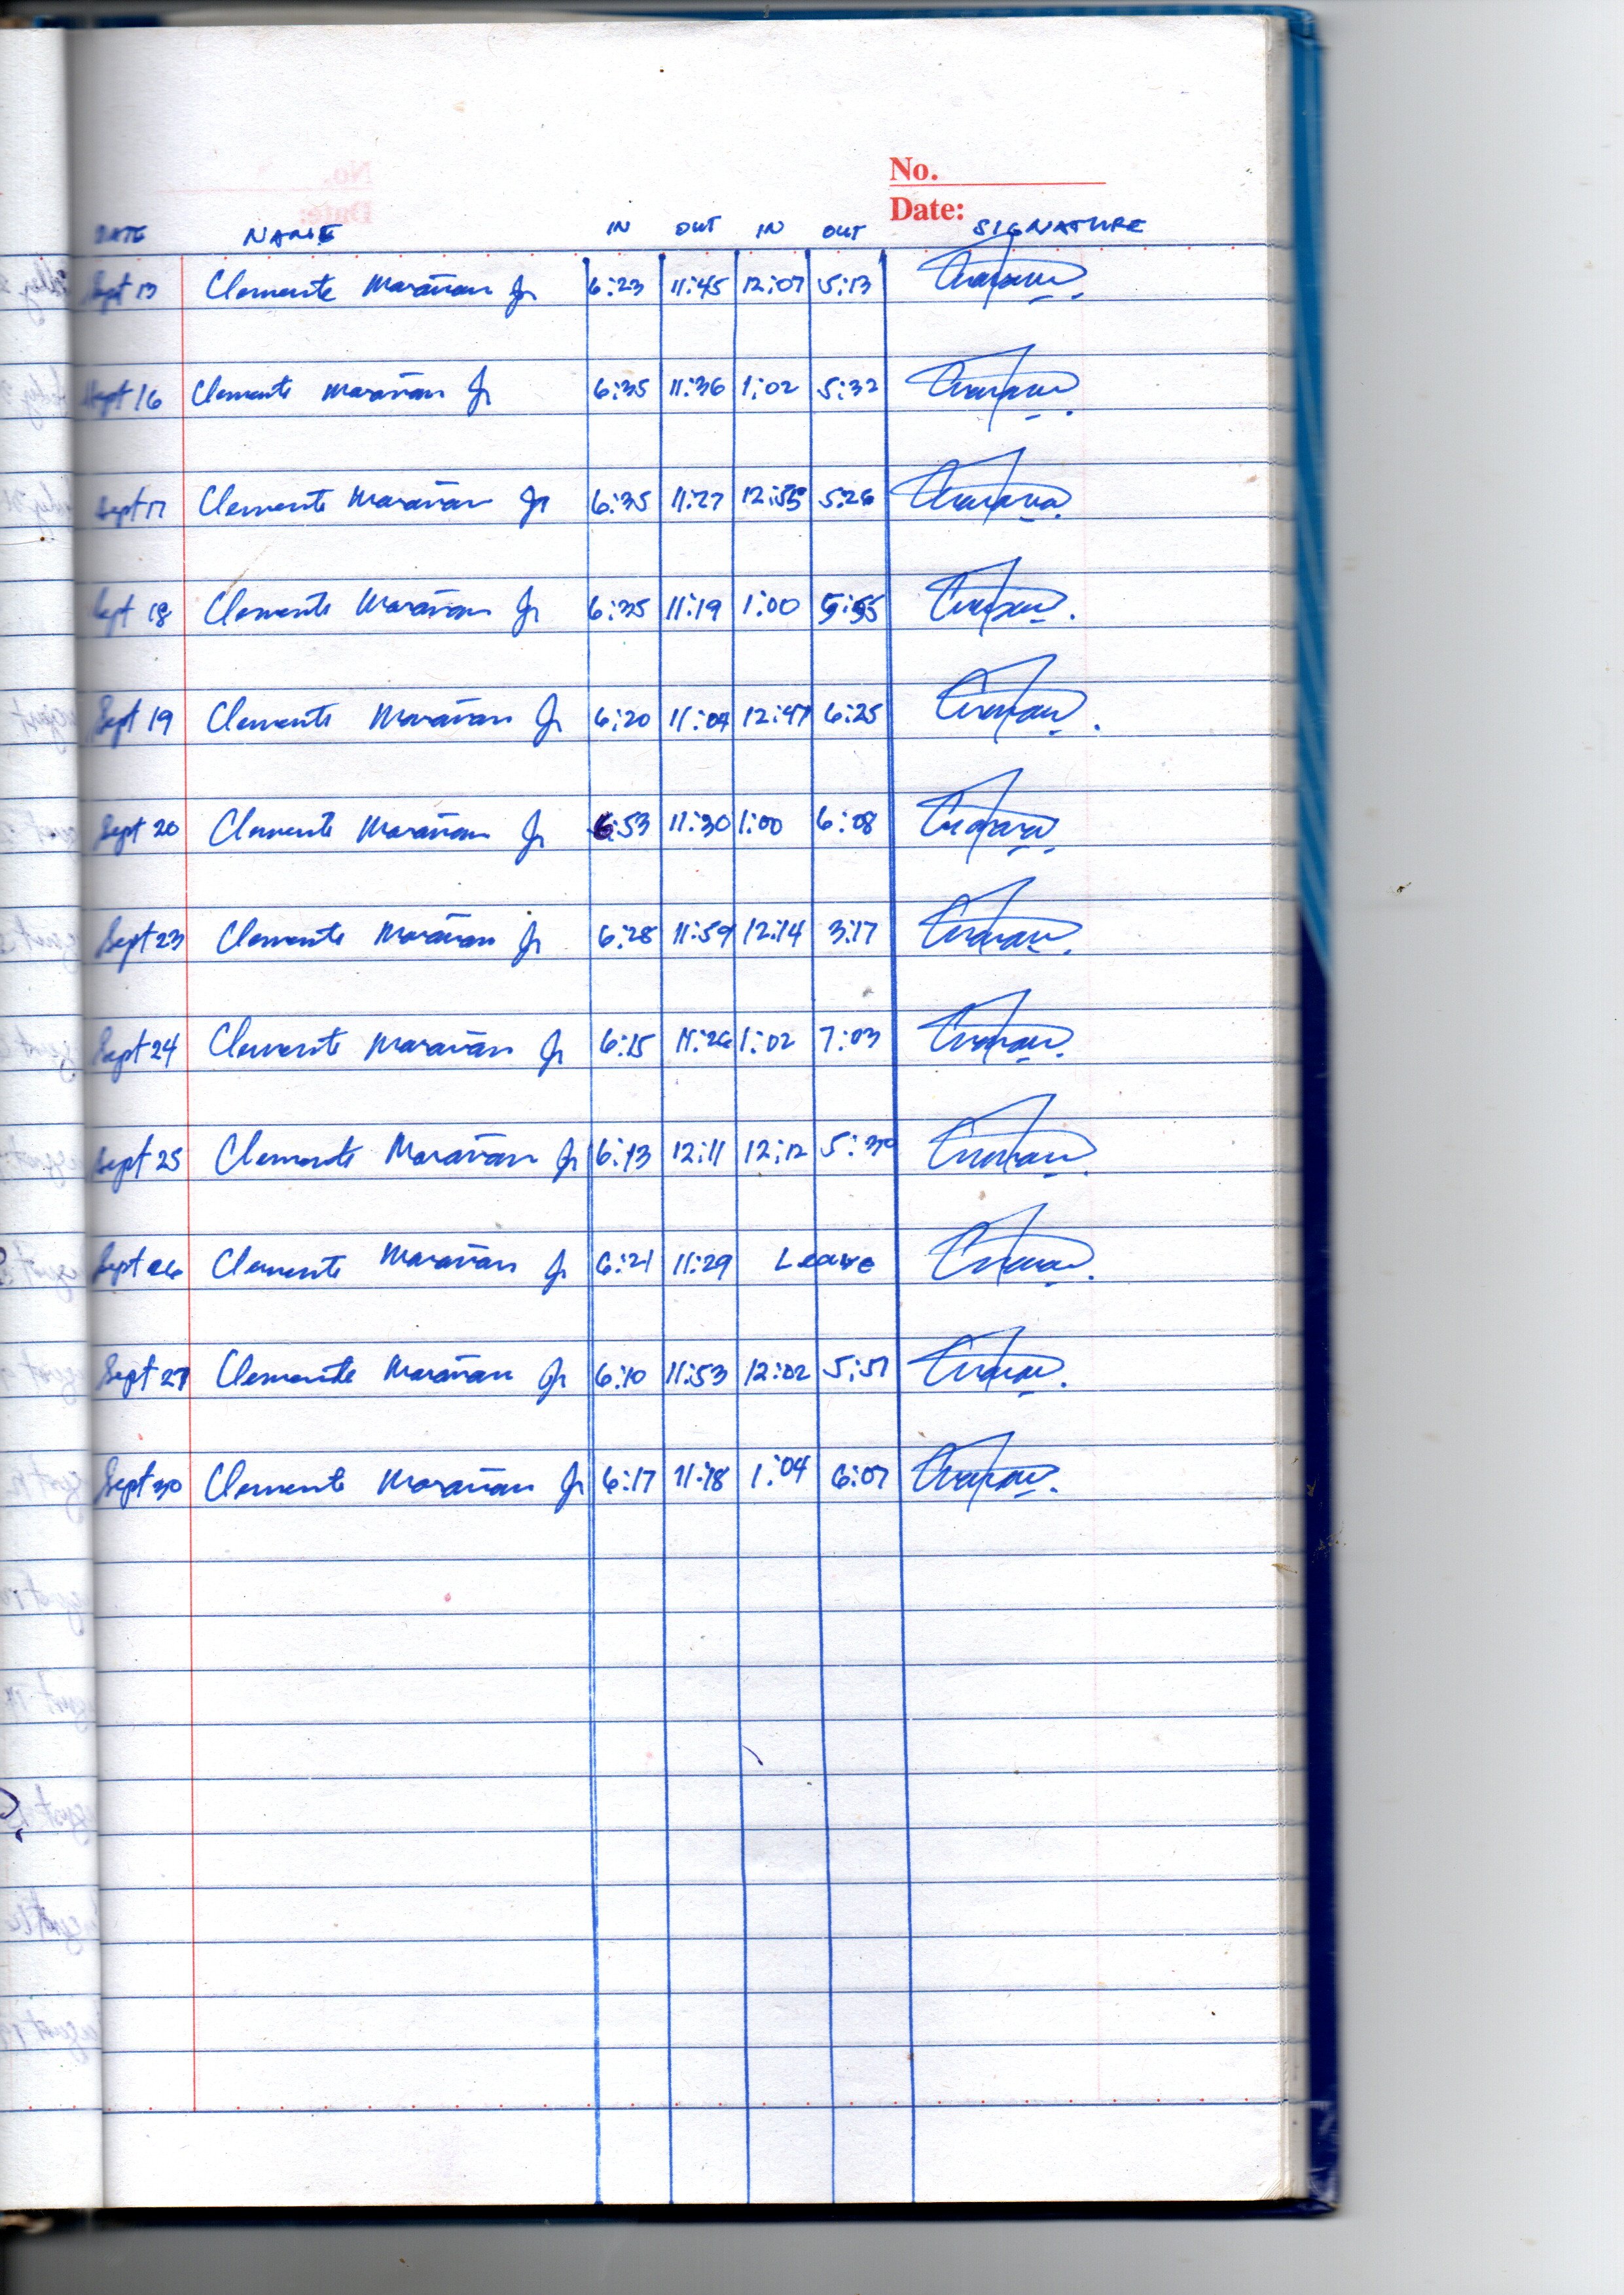 No.
Date:
DATE NAME IN OUT IN OUT SIGNATURE
Sept 13 Clemente Marañan Jr 6:23 11:45 12:07 5:13
Sept 16 Clemente Marañan Jr 6:35 11:36 1:02 5:32
Sept 17 Clemente Marañan Jr 6:35 11:27 12:55 5:26
Sept 18 Clemente Marañan Jr 6:35 11:19 1:00 5:55
Sept 19 Clemente Marañan Jr 6:20 11:04 12:47 6:25
Sept 20 Clemente Marañan Jr 6:53 11:30 1:00 6:08
Sept 23 Clemente Marañan Jr 6:28 11:59 12:14 3:17
Sept 24 Clemente Marañan Jr 6:15 11:26 1:02 7:03
Sept 25 Clemente Marañan Jr 6:13 12:11 12:12 5:30
Sept 26 Clemente Marañan Jr 6:21 11:29 Leave
Sept 27 Clemente Marañan Jr 6:10 11:53 12:02 5:57
Sept 30 Clemente Marañan Jr 6:17 11:18 1:04 6:07